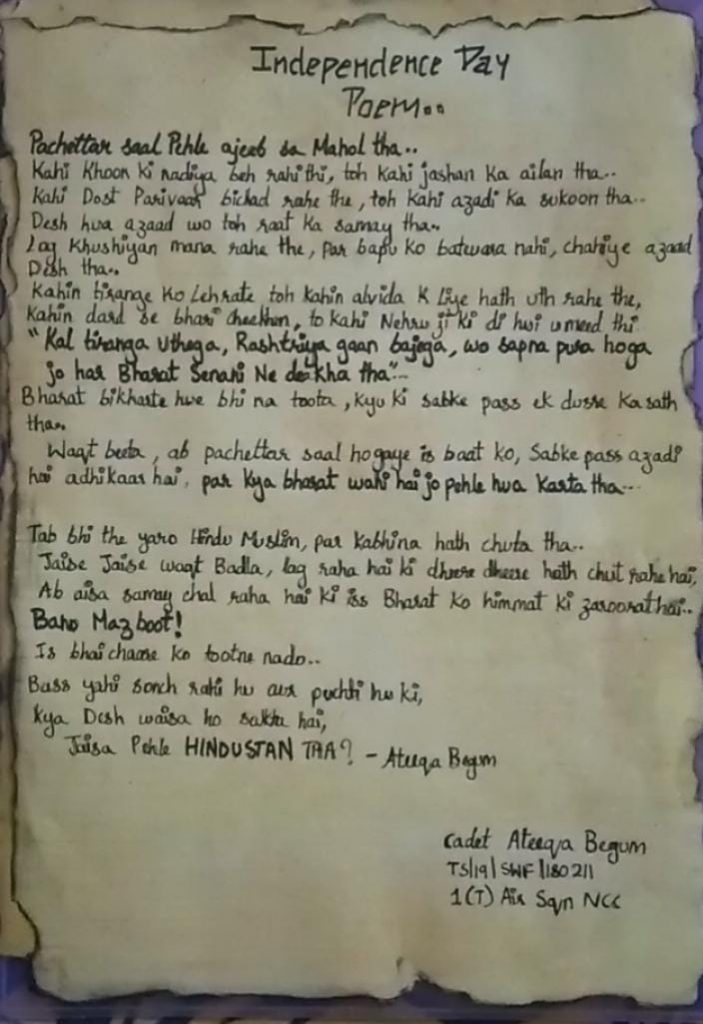 Independence Day
Poem..
Pachettar saal Pehle ajeeb sa Mahol tha..
Kahi Khoon ki nadiya beh rahi thi, toh kahi jashan ka ailan tha..
Kahi Dost Parivaar bichad rahe the, toh kahi azadi ka sukoon tha..
Desh hua azaad wo toh raat ka samay tha..
Log Khushiyan mana rahe the, par bapu ko batwara nahi, chahiye azaad
Desh tha..
Kahin tirange Ko Lehrate toh kahin alvida K liye hath uth rahe the,
Kahin dard se bhari cheekhen, to kahi Nehru ji ki di hui umeed thi
"Kal tiranga Uthega, Rashtriya gaan bajega, wo sapna pura hoga
jo har Bharat Senani Ne deakha tha"..
Bharat bikharte hue bhi na toota, kyu ki sabke pass ek dusre ka sath
tha..
Waqt beeta, ab pachettar saal ho gaye is baat ko, Sabke pass azadi
hai adhikaar hai, par kya bharat wahi hai jo pehle hua karta tha...
Tab bhi the yaro Hindu Muslim, par Kabhi na hath chuta tha..
Jaise Jaise waqt Badla, lag raha hai ki dheere dheere hath chut rahe hai,
Ab aisa samay chal raha hai ki iss Bharat ko himmat ki zaroorat hai..
Bano Mazboot!
Is bhaichaare ko tootne nado..
Bass yahi sonch rahi hu aur puchti hu ki,
Kya Desh waisa ho sakta hai,
Jaisa Pehle HINDUSTAN THA? - Ateeqa Begum
Cadet Ateeqa Begum
TS/19/SWF/180211
1(T) Air Sqn NCC